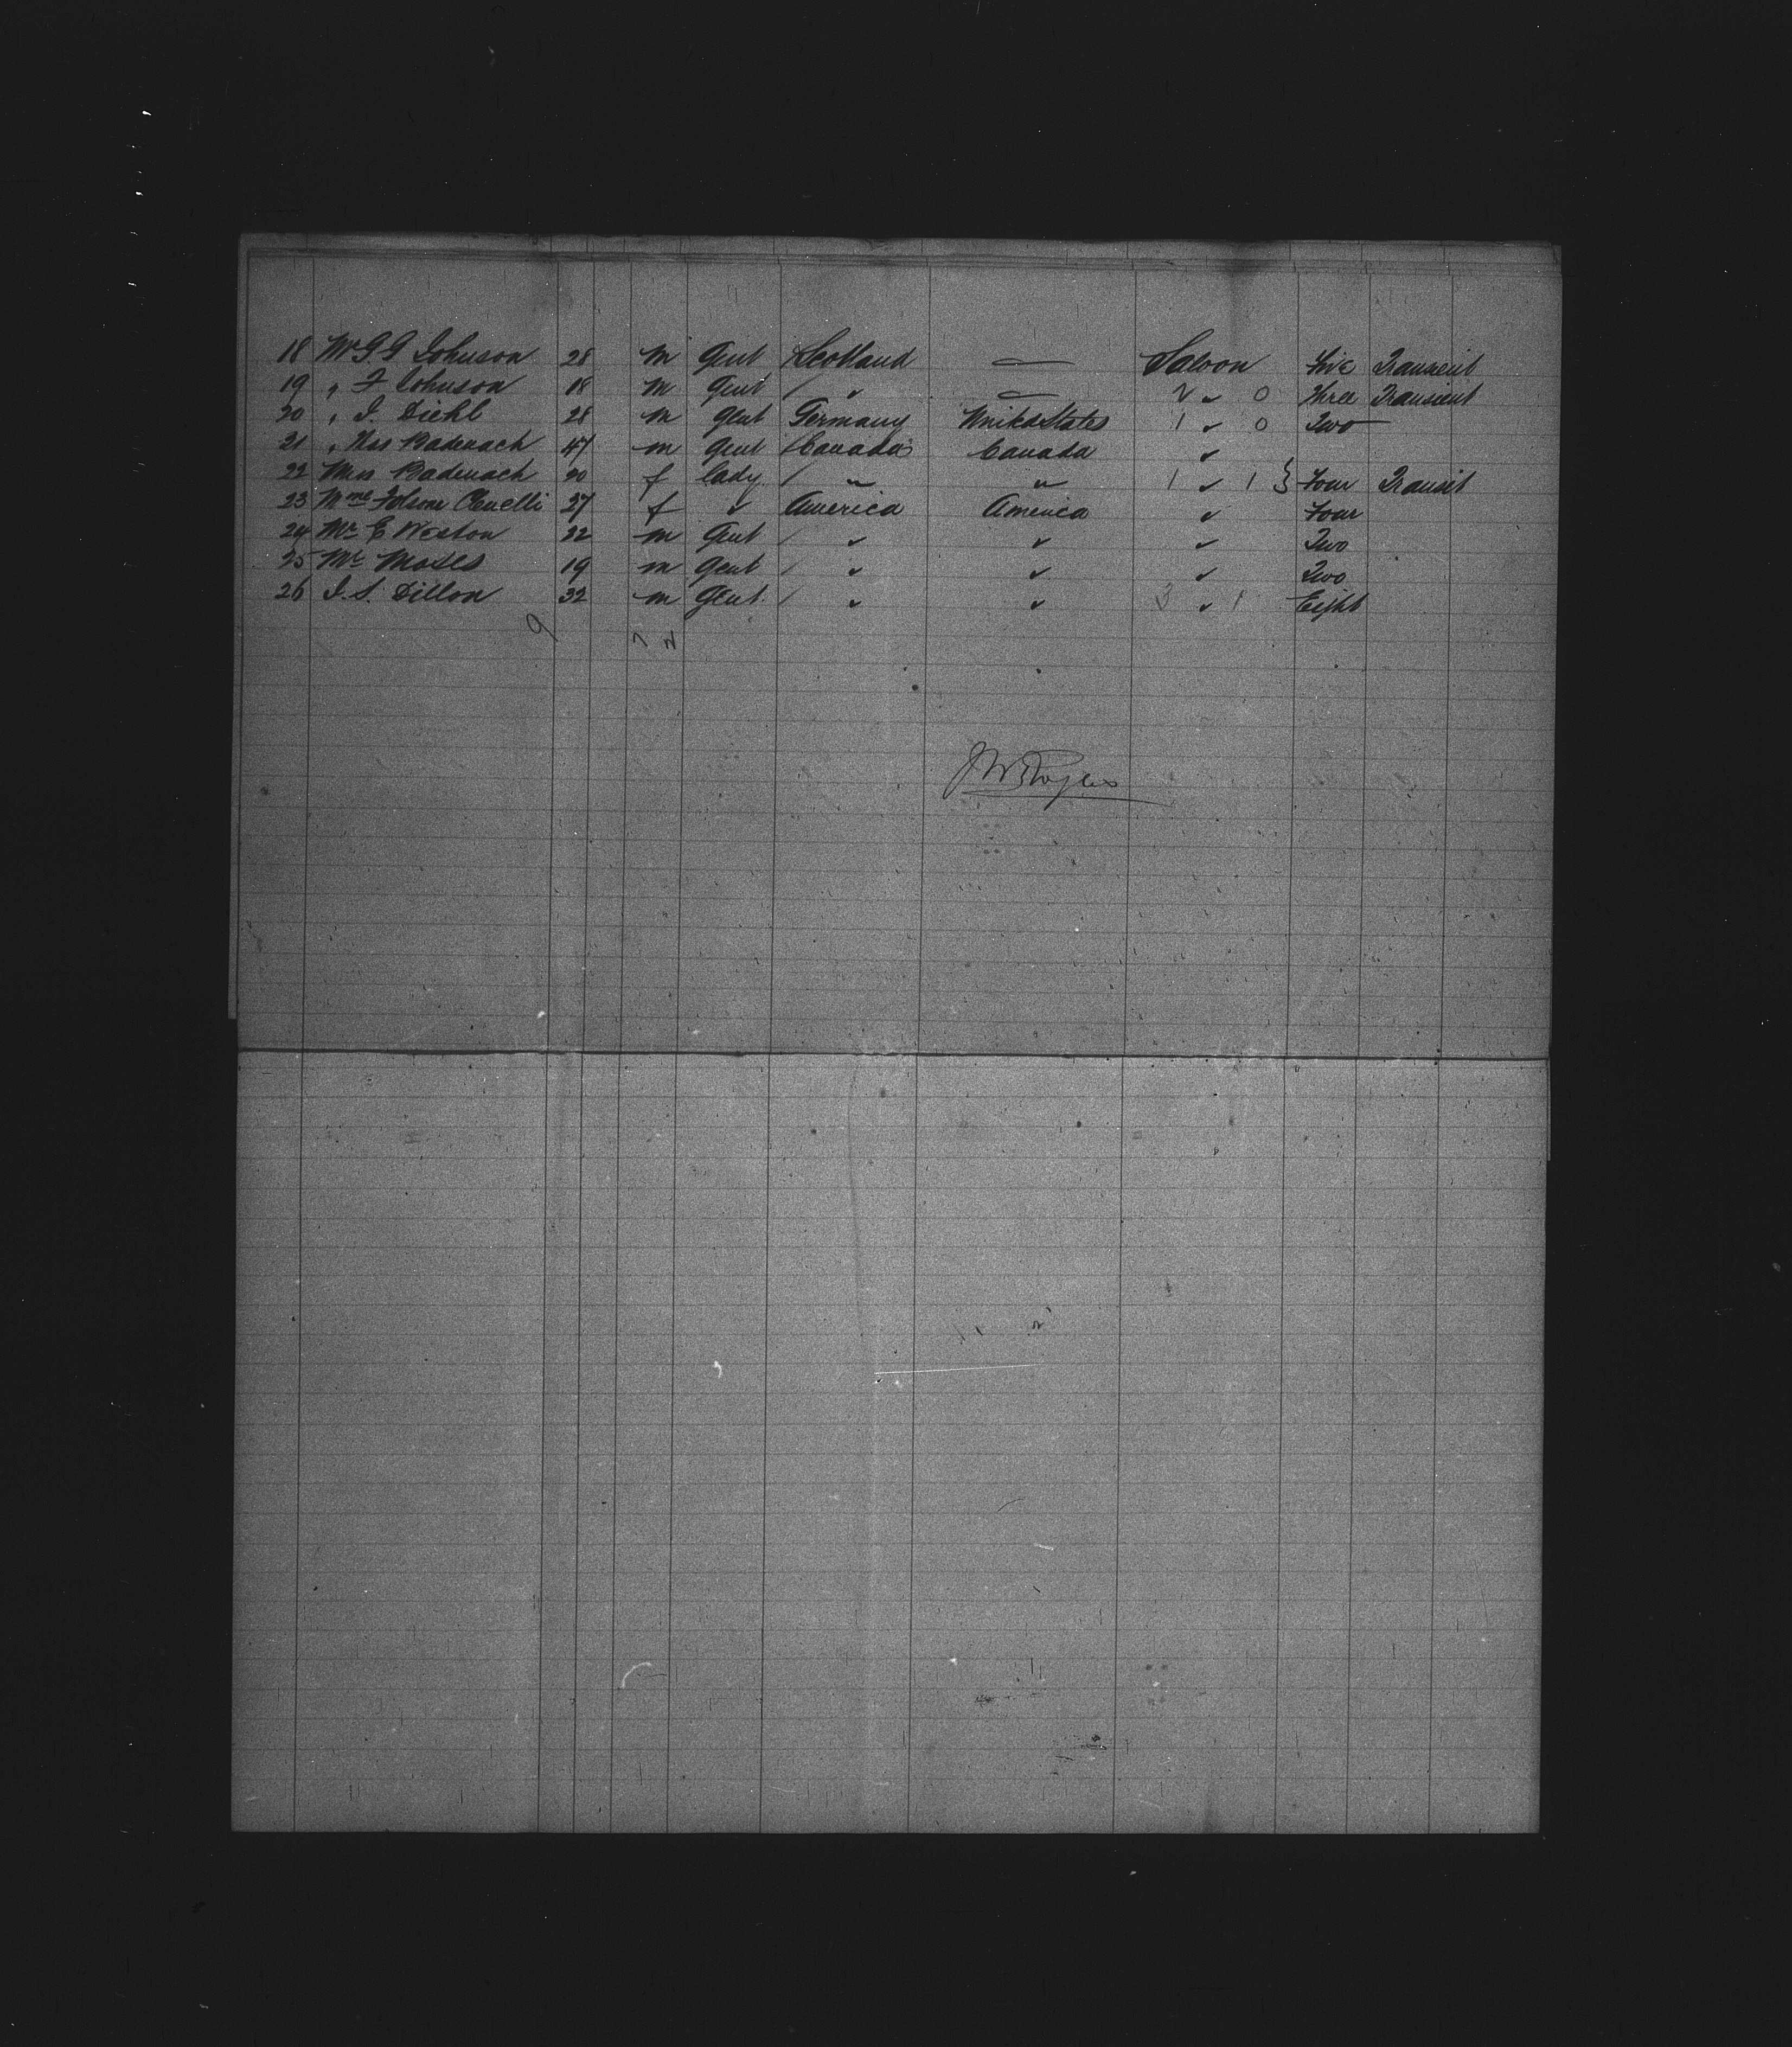 18 Mr G G Johnson 28 m Gent Scotland — Saloon Five Transient
19 " F Johnson 18 m Gent / " — 2 " 0 Three Transient
20 " I. Diehl 28 m Gent Germany United States 1 " 0 Two
21 " Thos Badenach 47 m Gent Canada Canada "
22 Mrs Badenach 20 f lady / " " 1 " 1 } Four Transit
23 Mme 27 f " America America " Four
24 Mr E Weston 22 m Gent / " " " Two
25 Mr Moses 19 m Gent / " " " Two
26 I. S. Dillon 32 m Gent. / " " 3 " 1 Eight
9 7 2